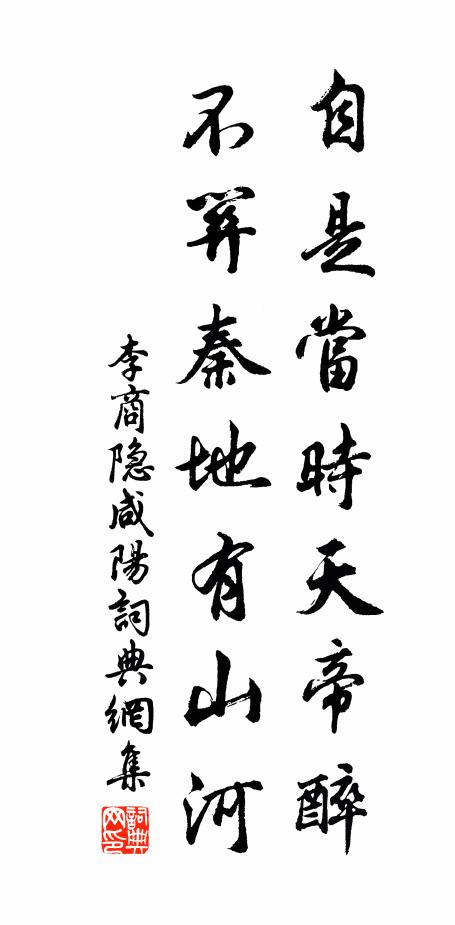 自是當時天帝醉
不關秦地有山河
李商隐咸陽詞典網集
詞典网印